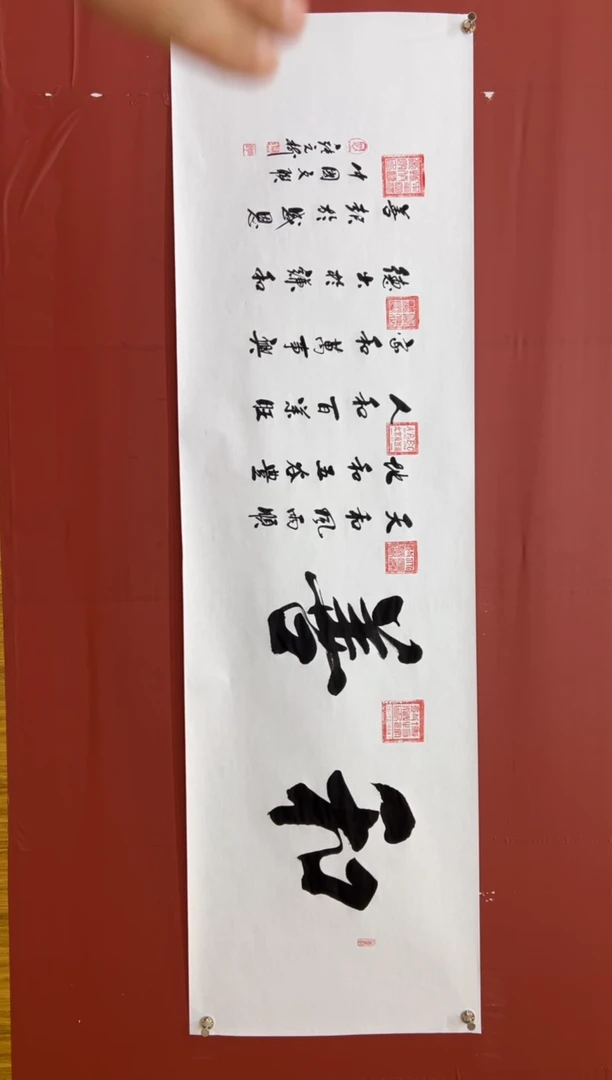 和善
天和風雨順
地和五谷豐
人和百業旺
家和萬事興
德大於謙和
善報於感恩
國文聯